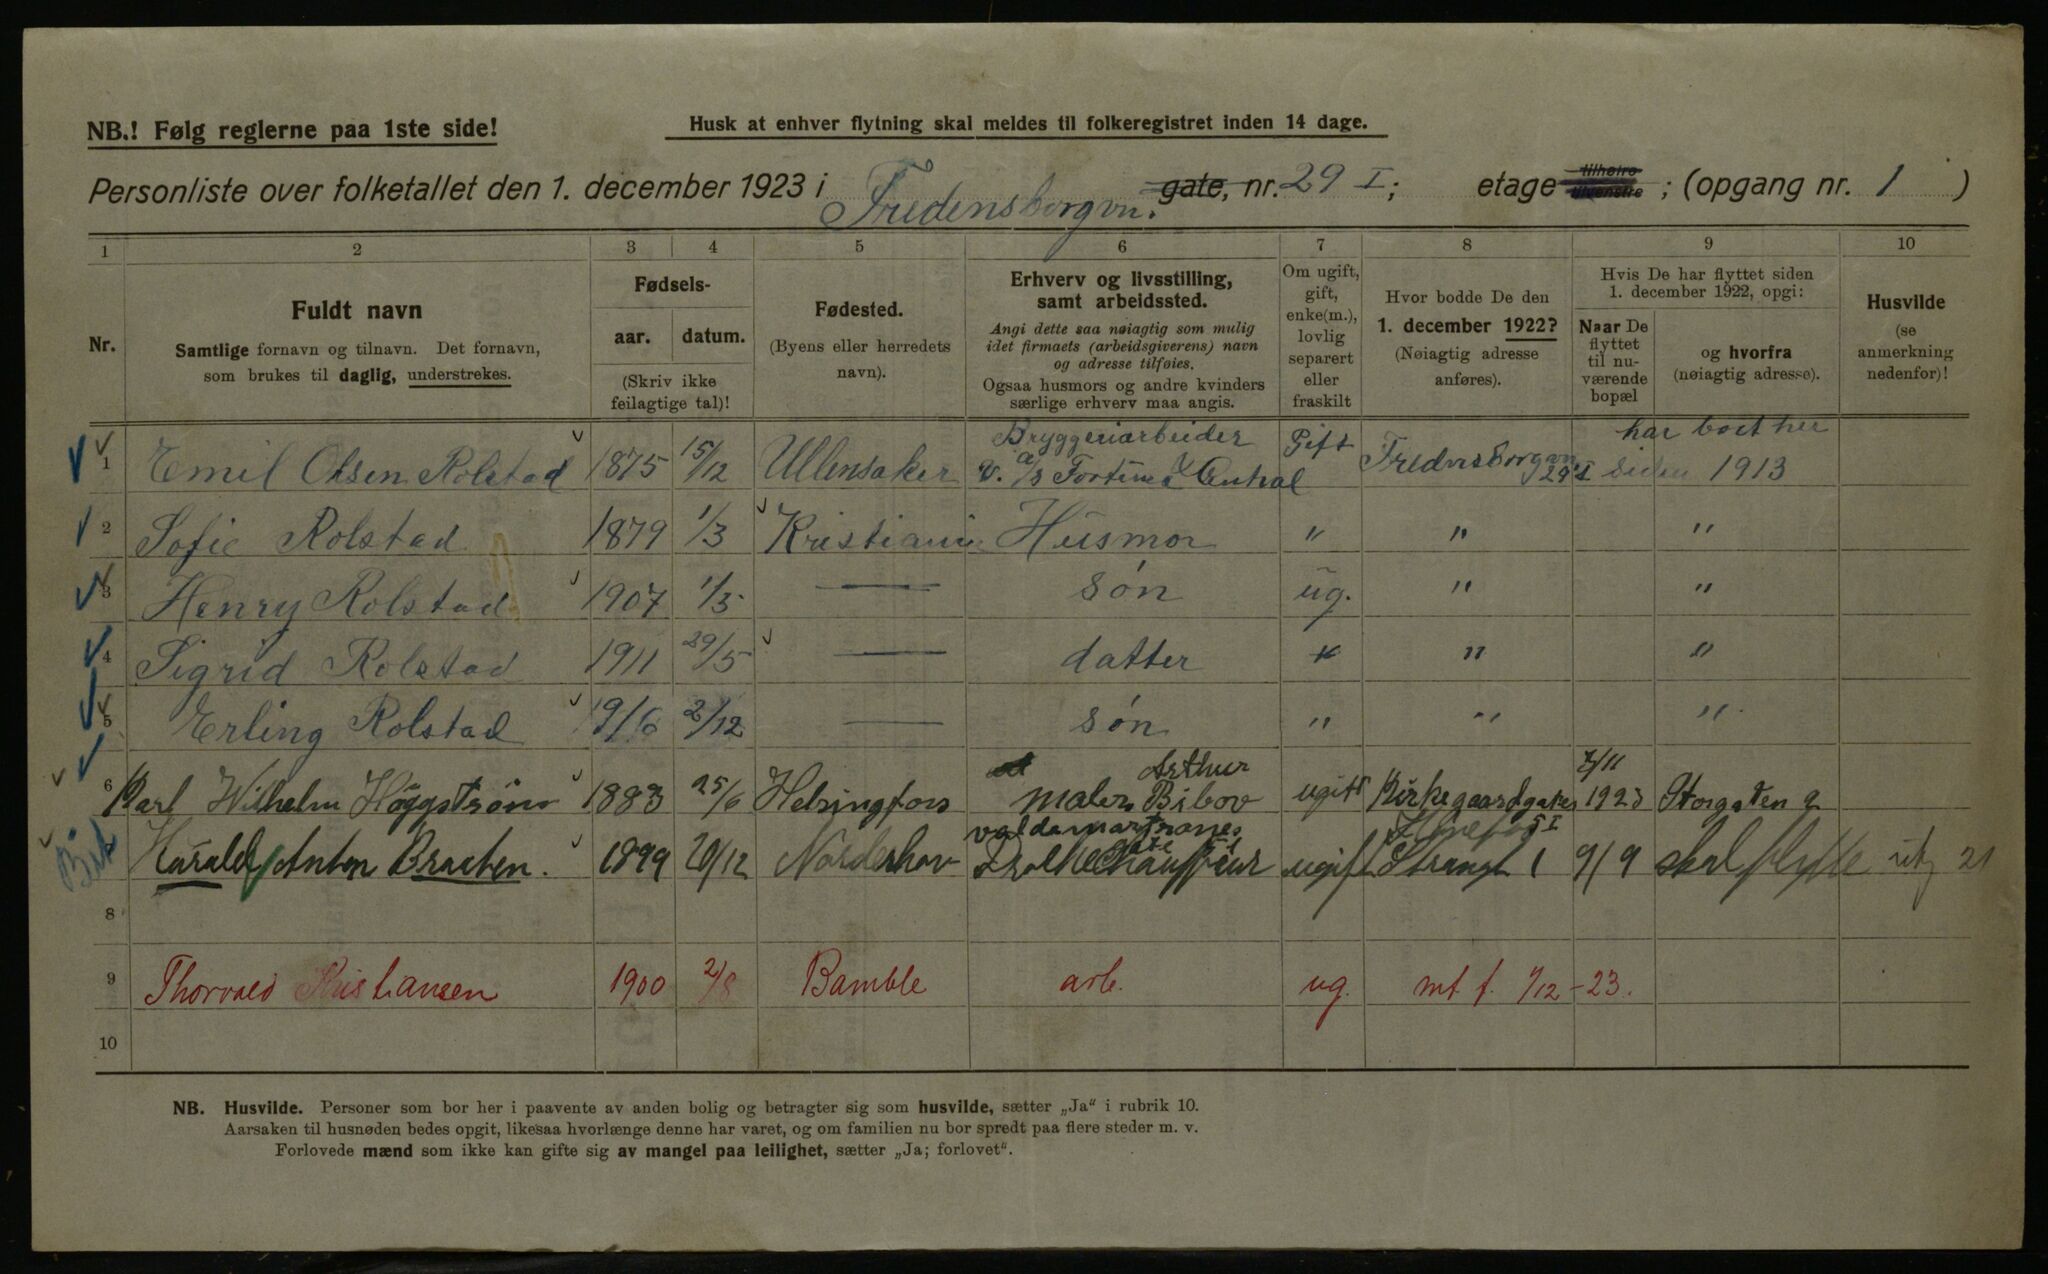 NB.! Følg reglerne paa 1ste side!
Husk at enhver flytning skal meldes til folkeregistret inden 14 dage.
Personliste over folketallet den 1. december 1923 i Fredensborgvn. gate, nr. 29 I; etage tilhøire tilvenstre; (opgang nr. 1)
1 2 3 4 5 6 7 8 9 10
Nr.
Fuldt navn
Samtlige fornavn og tilnavn. Det fornavn,
som brukes til daglig, understrekes.
Fødsels-
aar. datum.
(Skriv ikke
feilagtige tal)!
Fødested.
(Byens eller herredets
navn).
Erhverv og livsstilling,
samt arbeidssted.
Angi dette saa nøiagtig som mulig
idet firmaets (arbeidsgiverens) navn
og adresse tilføies.
Ogsaa husmors og andre kvinders
særlige erhverv maa angis.
Om ugift,
gift,
enke(m.),
lovlig
separert
eller
fraskilt
Hvor bodde De den
1. december 1922?
(Nøiagtig adresse
anføres).
Hvis De har flyttet siden
1. december 1922, opgi:
Naar De
flyttet
til nu-
værende
bopæl
og hvorfra
(nøiagtig adresse).
Husvilde
(se
anmerkning
nedenfor)!
1 Emil Olsen Rolstad 1875 15/12 Ullensaker Bryggeriarbeider v. a/s Fortuna Central Gift Fredensborgvn 29 I har boet her siden 1913
2 Sofie Rolstad 1879 1/3 Kristiania Husmor " " "
3 Henry Rolstad 1907 1/5 — søn ug. " "
4 Sigrid Rolstad 1911 29/5 — datter " " "
5 Erling Rolstad 1916 2/12 — søn " " "
6 Karl Wilhelm Häggstrøm 1883 25/6 Helsingfors maler Arthur Bibov ugift Kirkegaardgaten 5 I 7/11 1923 Storgaten 9
Harald Anton Braaten. 1899 20/12 Norderhov valdemar tranes gate Chauffeur ugift Strangt 1 9/9 skal flytte
8
9 Thorvald Kristiansen 1900 2/8 Bamble arb. ug. mt f. 1/12 – 23.
10
NB. Husvilde. Personer som bor her i paavente av anden bolig og betragter sig som husvilde, sætter „Ja" i rubrik 10.
Aarsaken til husnøden bedes opgit, likesaa hvorlænge denne har varet, og om familien nu bor spredt paa flere steder m. v.
Forlovede mænd som ikke kan gifte sig av mangel paa leilighet, sætter „Ja; forlovet".